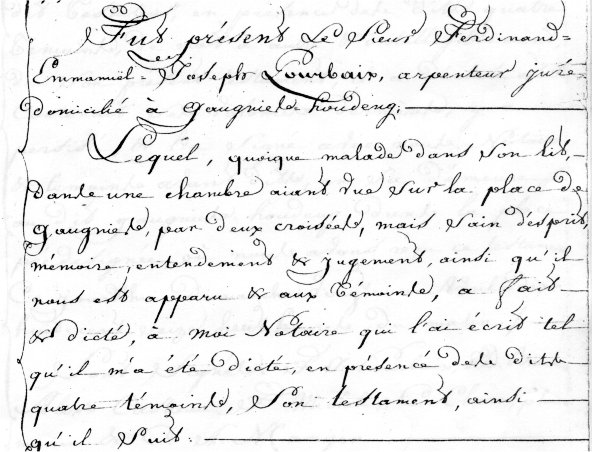 Fut présent Le Sieur Ferdinand-
Emmanuël-Joseph Lourbaix, arpenteur juré
domicilié à Gaugnies-houdeng;
Lequel, quoique malade dans son lit,
dans une chambre aiant vue sur la place de
Gaugnies, par deux croisées, mais sain d'esprit,
mémoire, entendement & jugement, ainsi qu'il
nous est apparu & aux témoins, a fait
& dicté, à moi Notaire qui l'ai écrit tel
qu'il m'a été dicté, en présence des dits
quatre témoins, Son testament, ainsi
qu'il suit.